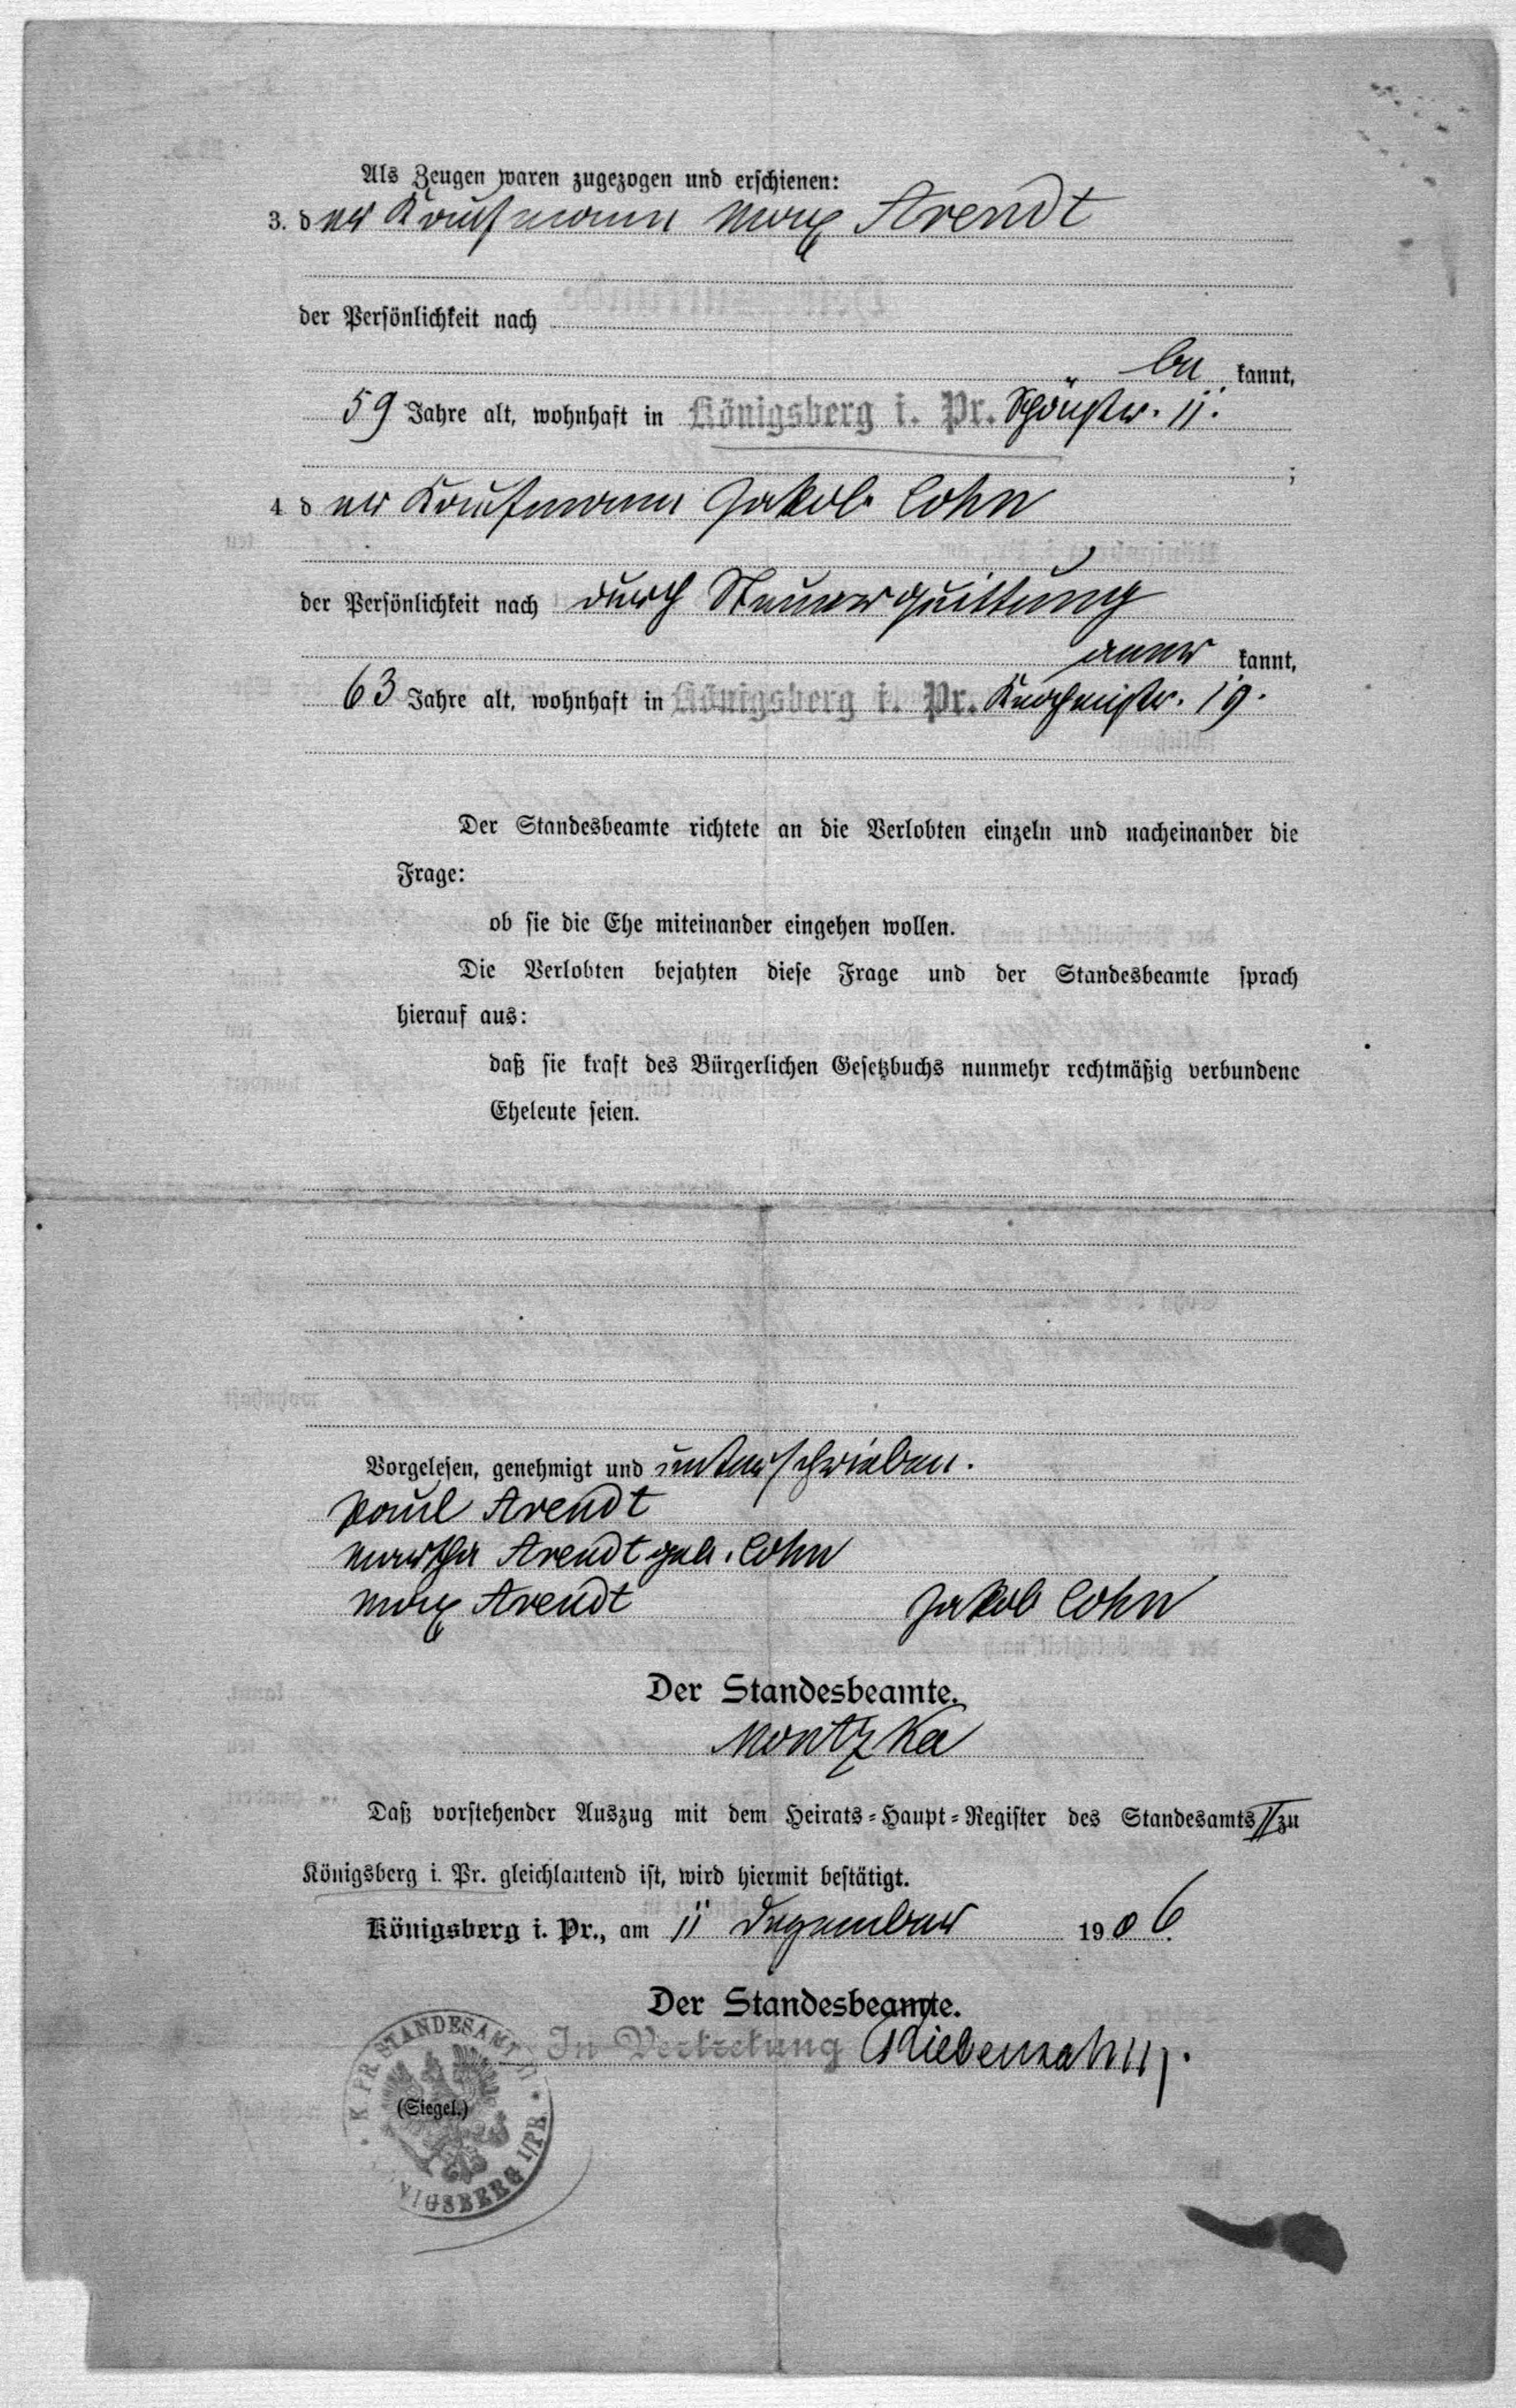 Als Zeugen waren zugezogen und erschienen:
3. der Kaufmann Max Arendt
der Persönlichkeit nach
be kannt,
59 Jahre alt, wohnhaft in Königsberg i. Pr. Schönstr. 11.
;
4 der Kaufmann Jakob Cohn
der Persönlichkeit nach durch Steuerquittung
aner kannt,
63 Jahre alt, wohnhaft in Königsberg i. Pr. 19.
Der Standesbeamte richtete an die Verlobten einzeln und nacheinander die
Frage:
ob sie die Ehe miteinander eingehen wollen.
Die Verlobten bejahten diese Frage und der Standesbeamte sprach
hierauf aus:
daß sie kraft des Bürgerlichen Gesetzbuchs nunmehr rechtmäßig verbundene
Eheleute seien.
Vorgelesen, genehmigt und unterschrieben.
Paul Arendt
Martha Arendt geb. Cohn
Max Arendt Jakob Cohn
Der Standesbeamte.
Montzka
Daß vorstehender Auszug mit dem Heirats-Haupt-Register des Standesamts II zu
Königsberg i. Pr. gleichlautend ist, wird hiermit bestätigt.
Königsberg i. Pr., am 11 Dezember 1906
Der Standesbeamte.
In Vertretung
K. PR. STANDESAMT II
(Siegel.)
KÖNIGSBERG I/PR.